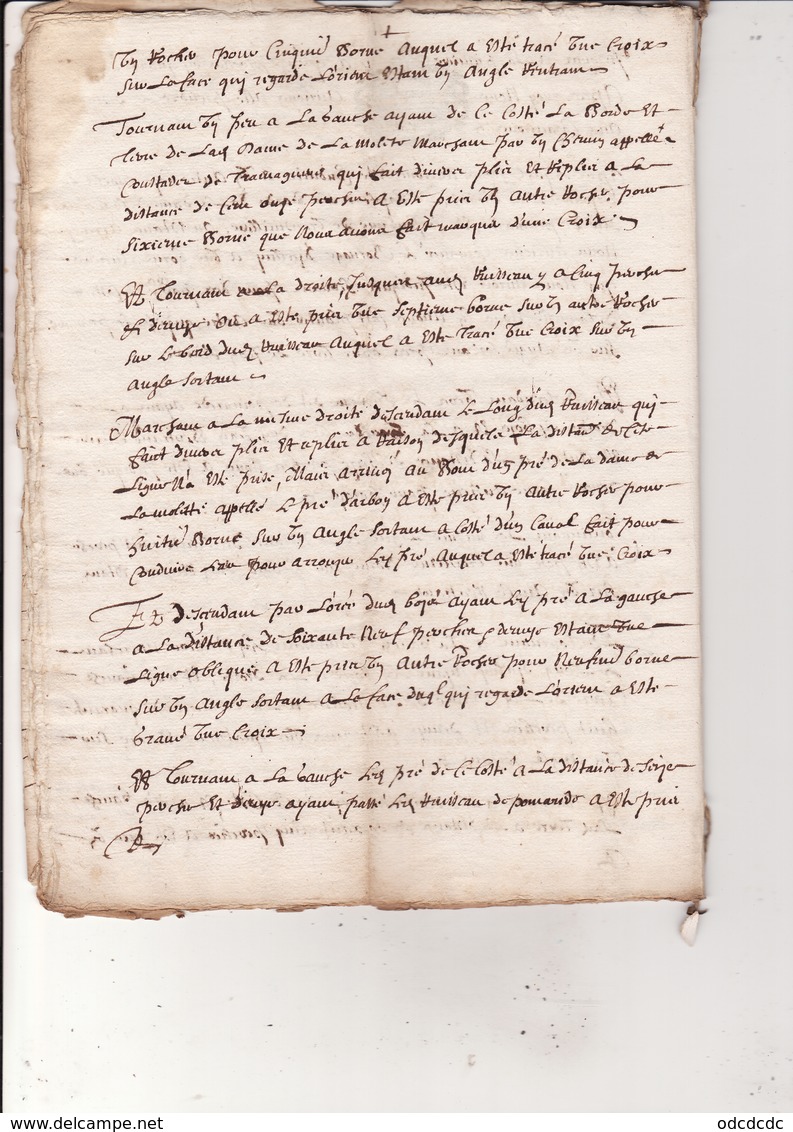 +
un Rocher pour Cinquie Borne Auquel a esté tracé une Croix
sur La face qui regarde L'orient Estant un Angle Rentrant
Tournant un peu a La Gauche ayant de ce Costé La Borde Et
terre de Lad Dame de La Molete Marchant par un Chemin appellé
qui fait divers plis Et Replis a La
distance de Cent onze perches a Esté pris un Autre Rocher pour
sixieme Borne que Nous avons fait marquer d'une Croix
Et Tournant a La droite, Jusques aud Ruisseau y a Cinq perches
et demye ou a Esté pris une septieme borne sur un autre Rocher
sur Le bord dud Ruisseau Auquel a Esté Tracé une Croix sur un
Angle sortant
Marchant a La mesme droite descendant Le Long dud Ruisseau qui
faict divers plis Et replis a Raison desquels La distance de Cete
Ligne N'a Esté prise, Mais arrivés au Bout d'un pré de La dame de
La molette appellé Le pré d'arbon a Esté pris un Autre Rocher pour
huitie Borne sur un Angle sortant a Costé d'un Canal fait pour
Conduire L'eau pour arroser Led pré Auquel a Esté tracé une Croix
Et descendant par L'orée dud ayant Led pré a La gauche
a La distance de soixante Neuf perches & demye Estant une
Ligne oblique a Esté pris un Autre Rocher pour Neufvie borne
sur un Angle sortant a La face duql qui regarde L'orient a Esté
Gravé une Croix
Et Tournant a La Gauche Led pré de ce Costé a La distance de seize
perches Et demye ayant passé Led Ruisseau de a Esté pris
odcdcdc